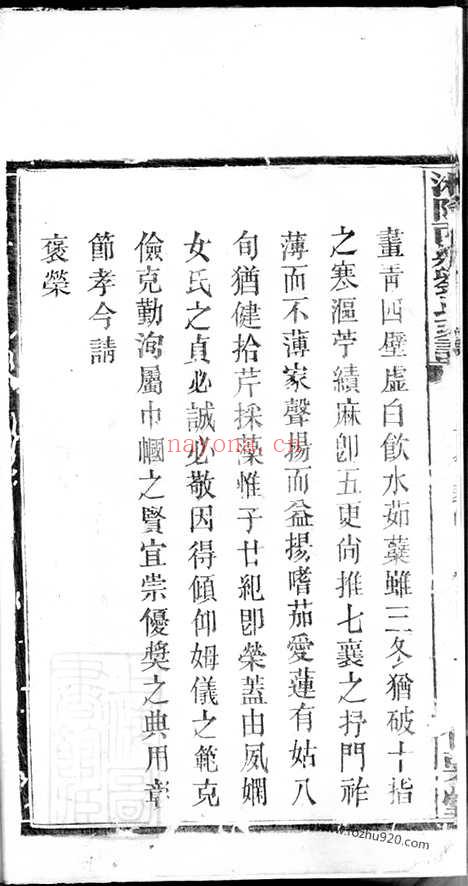 畫靑四壁虛白飲水茹蘗雖三冬猶破十指
之寒漚苧績麻卽五更尙推七襄之抒門祚
薄而不薄家聲揚而益揚嗜茄愛蓮有姑八
旬猶健拾芹採藻惟子廿紀卽榮蓋由夙嫻
女氏之貞必誠必敬因得傾仰姆儀之範克
儉克勤洵屬巾幗之賢宜崇優獎之典用章
節孝今請
褒榮
nayong.cn
www.fozhu920.com